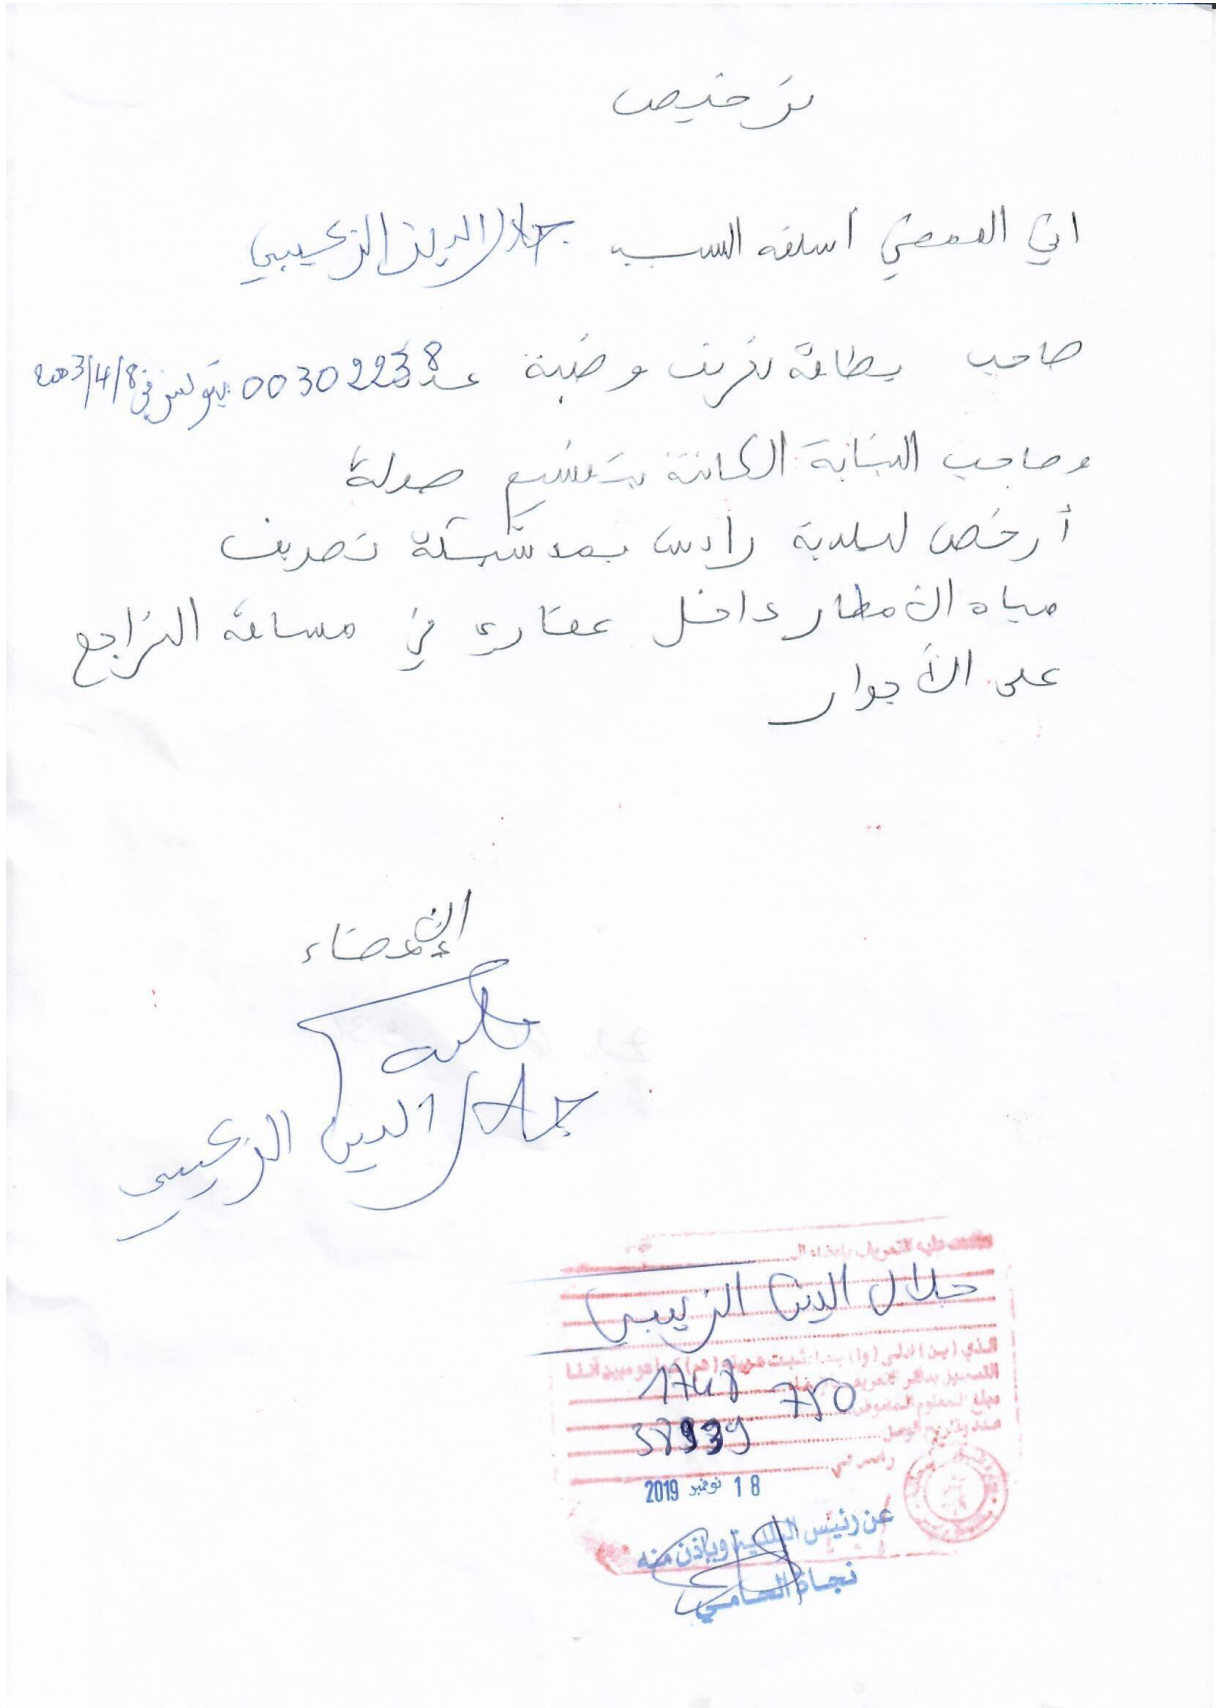 ترخيص
اني الممضي أسفله السيد جلال الدين الزكيبي
صاحب بطاقة تعريف وطنية عدد 00302238 بتونس في 2003/4/8
وصاحب البناية الكائنة بتقسيم صولة
أرخص لبلدية رادس بمد شبكة تصريف
مياه الأمطار داخل عقاري في مسافة التراجع
على الأجوار
الإمضاء
جلال الدين الزكيبي
التعريف بإمضاء ال
جلال الدين الزكيبي
1748 750
38939
18 نوفمبر 2019
عن رئيس البلدية وبإذن منه
نجاة الحامي